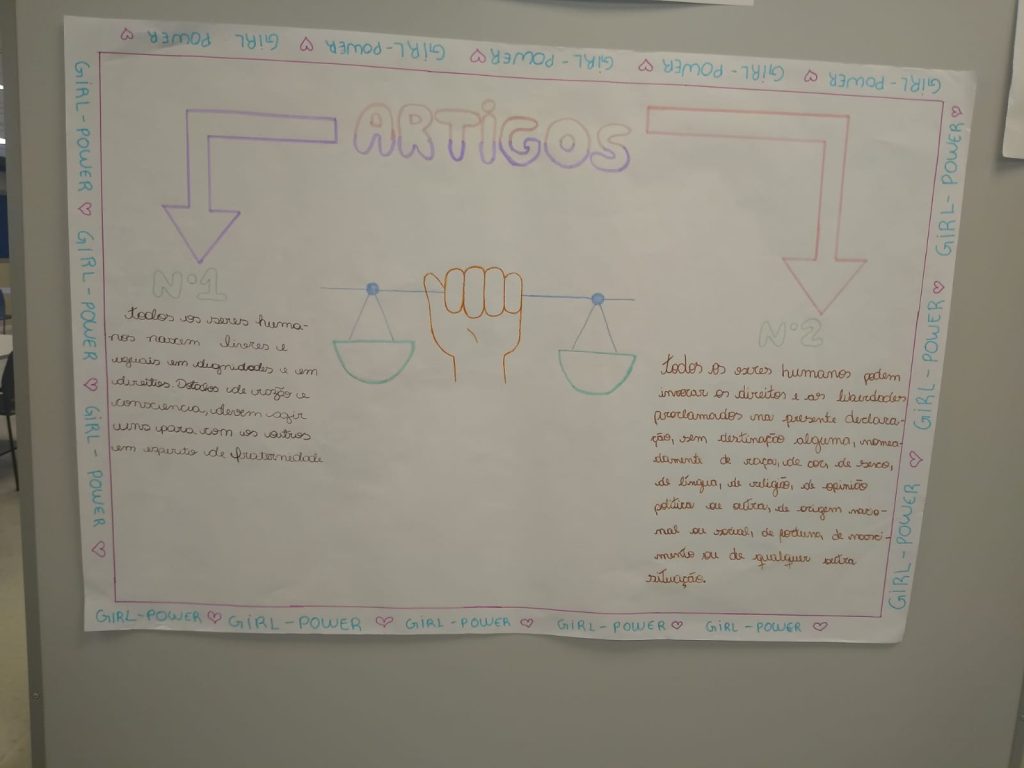 GIRL-POWER ♡ GIRL-POWER ♡ GIRL-POWER ♡ GIRL-POWER ♡ GIRL-POWER ♡
GIRL-POWER ♡ GIRL-POWER ♡ GIRL-POWER ♡
ARTIGOS
Nº1
todos os seres huma-
nos nascem livres e
iguais em dignidades e em
direitos. Dotados de razão e
consciencia, devem agir
uns para com os outros
em espirito de fraternidade
Nº2
todos os seres humanos podem
invocar os direitos e as liberdades
proclamados na presente declara-
ção, sem destinação alguma, nomea-
damente de raça, de cor, de sexo,
de língua, de religião, de opinião
política ou outra, de origem nacio-
nal ou social, de fortuna, de nasci-
mento ou de qualquer outra
situação.
♡ GIRL-POWER ♡ GIRL-POWER ♡ GIRL-POWER
GIRL-POWER ♡ GIRL-POWER ♡ GIRL-POWER ♡ GIRL-POWER ♡ GIRL-POWER ♡